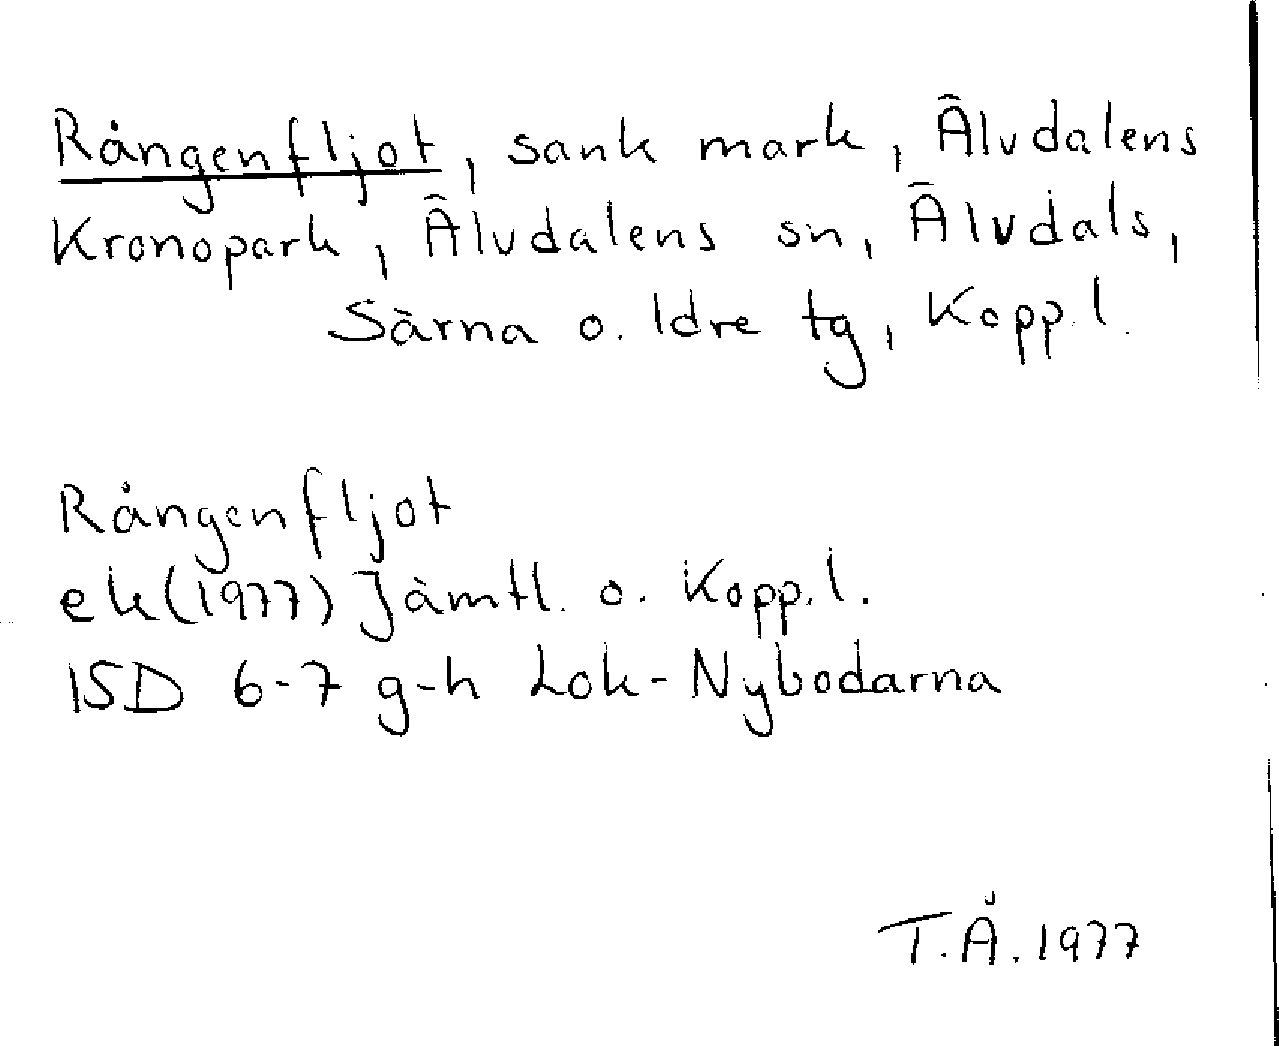 Rångenfljot, sank mark, Älvdalens
Kronopark, Älvdalens sn, Älvdals,
Särna o. Idre tg, Kopp.l.
Rångenfljot
ek(1977) Jämtl. o. Kopp.l.
15D 6-7 g-h Lok-Nybodarna
T.Å.1977